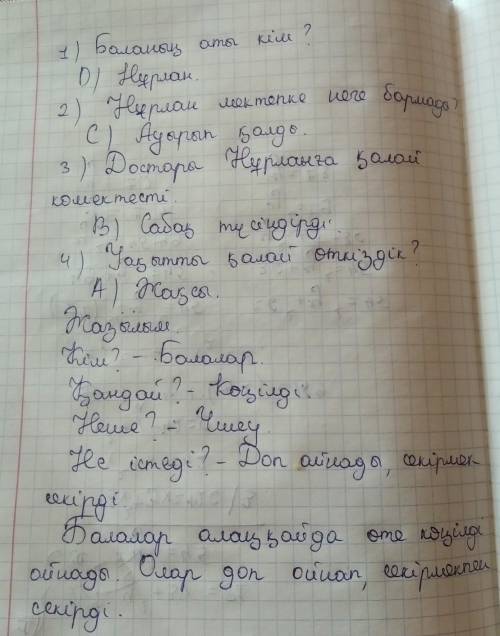 1) Баланың аты кім?
D) Нұрлан.
2) Нұрлан мектепке неге бармады?
C) Ауырып қалды.
3) Достары Нұрланға қалай
көмектесті.
B) Сабақ түсіндірді.
4) Уақытты қалай өткіздік?
A) Жақсы.
Жазылым.
Кім? – Балалар.
Қандай? – Көңілді.
Неше? – Үшеу
Не істеді? – Доп ойнады, секірмек
секірді.
Балалар алаңқайда өте көңілді
ойнады. Олар доп ойнап, секірмекпен
секірді.